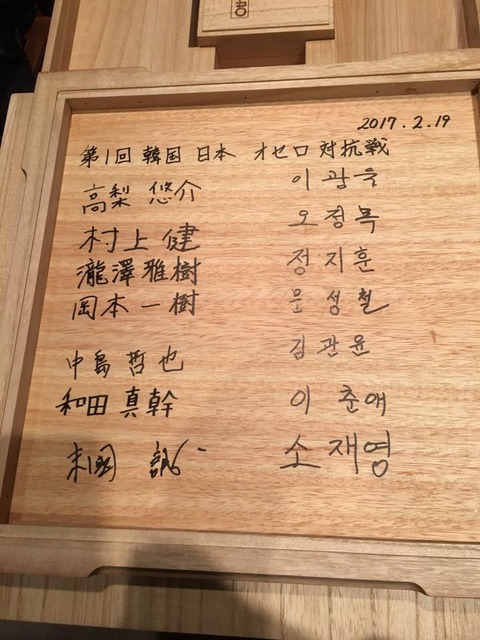 2017.2.19
第1回 韓国 日本 オセロ 対抗戦
高梨 悠介
村上 健
瀧澤雅樹
岡本一樹
中島 哲也
和田 真幹
末國 誠
이 광욱
오 정목
정 지 훈
문 성 철
김 관 윤
이 춘애
소 재영